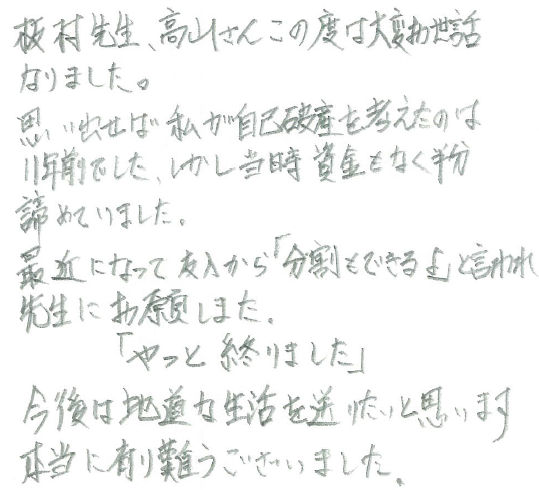 板村先生、高山さんこの度は大変お世話
なりました。
思い出せば私が自己破産を考えたのは
11年前でした、しかし当時資金もなく半分
諦めていました。
最近になって友人から「分割もできるよ」と言われ
先生にお願しました。
「やっと終りました」
今後は地道な生活を送りたいと思います
本当に有り難うございました。